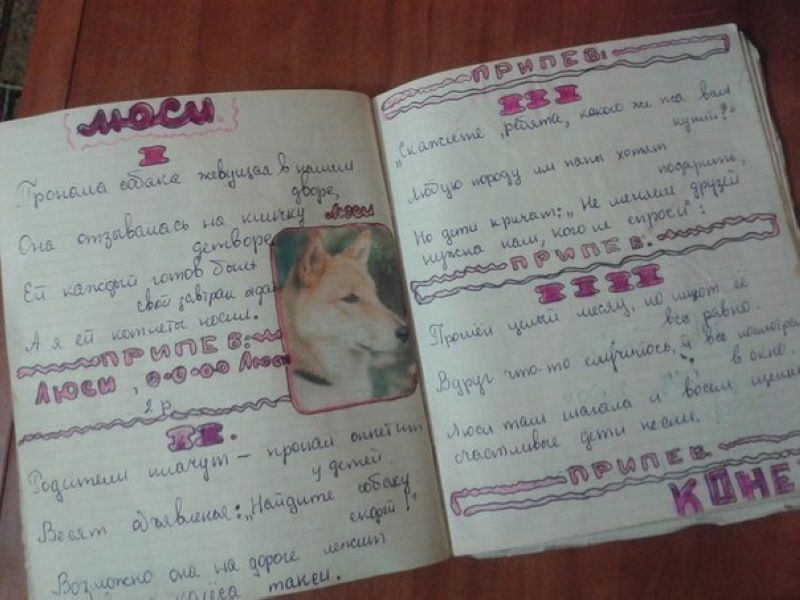 ЛЮСИ.
I
Пропала собака жевущая в нашем
дворе,
Она отзывалась на кличку Люси
детворе
Ей каждый готов был
свой завтрак
А я ей котлеты носил.
ПРИПЕВ:
Люси, О-О-ОО Люси
2 р.
II.
Родители плачут – пропал аппетит
у детей.
Весят объявленья: „Найдите собаку
скорей!"
Возможно она на дороге лежит
колёса такси.
ПРИПЕВ:
III
„Скажите, ребята, какого же пса вам
купить?"
Любую породу им папы хотят
подарить,
Но дети кричат: „Не меняем друзей
нужна нам, кого не спроси":
ПРИПЕВ.
IIII
Прошёл целый месяц, но ищют её
всё равно.
Вдруг что-то случилось, и все посмотрели
в окно.
Люси там шагала и восем щенков
счастливые дети несли.
ПРИПЕВ.
КОНЕ